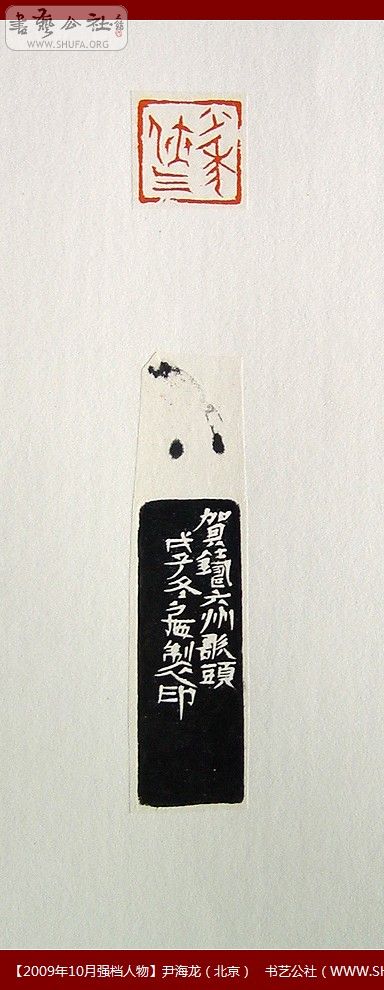 書藝公社
WWW.SHUFA.ORG
少年
俠气
賀鑄六州歌頭
戊子冬海製印
【2009年10月强档人物】尹海龙（北京） 书艺公社（WWW.SH